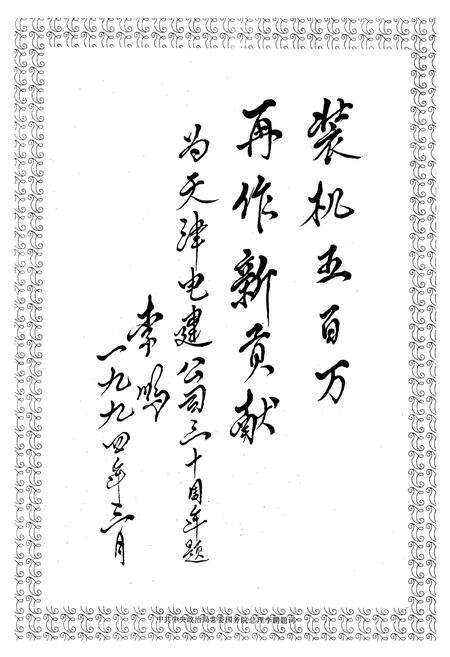 装机五百万
再作新贡献
为天津电建公司三十周年题
李鹏
一九九四年三月
中共中央政治局常委国务院总理李鹏题词